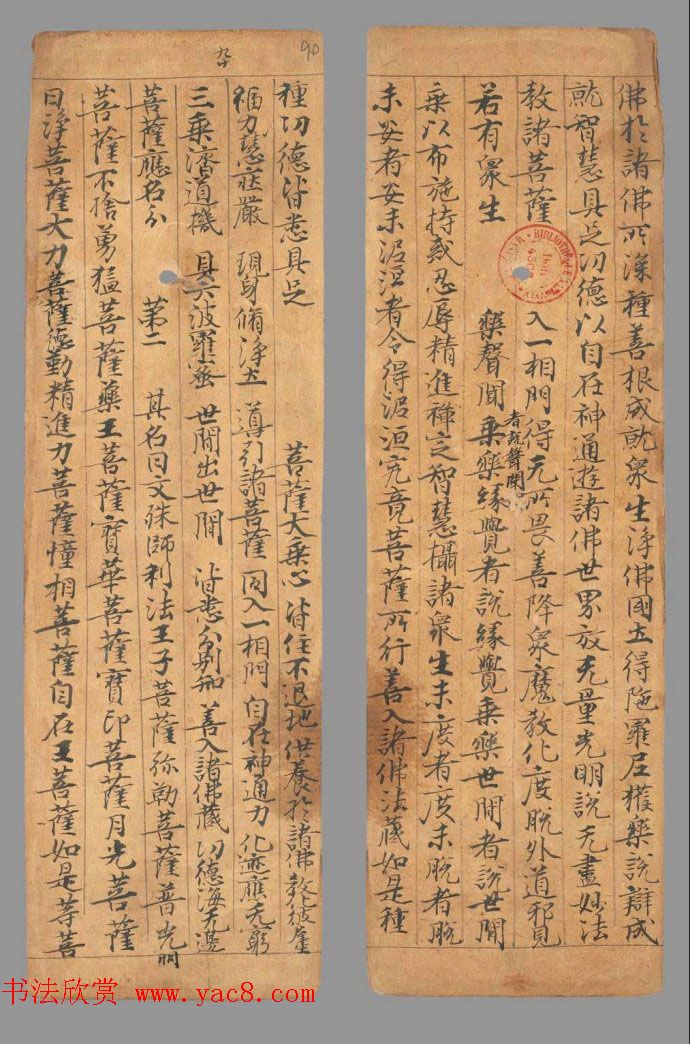 佛於諸佛所深種善根成就衆生淨佛國土得陁羅尼獲樂說辯成
就智慧具足功德以自在神通遊諸佛世界放无量光明說无盡妙法
教諸菩薩 入一相門得无所畏善降衆魔教化度脫外道邪見
若有衆生 樂聲聞者說聲聞乘樂緣覺者說緣覺乘樂世間者說世間
乘以布施持戒忍辱精進禪定智慧攝諸衆生未度者度未脫者脫
未安者安未涅者令得涅洹究竟菩薩所行善入諸佛法藏如是種
90
種功德皆悉具足 菩薩大乘心 皆住不退地 供養於諸佛 教化彼
福力慧莊嚴 現身脩淨土 導引諸菩薩 同入一相門 自在神通力 化迹應无窮
三乘濟道機 具六波羅蜜 世間出世間 皆悉分別知 善入諸佛藏 功德海无邊
菩薩應名分 第二 其名曰文殊師利法王子菩薩弥勒菩薩普光明
菩薩不捨勇猛菩薩藥王菩薩寶華菩薩寶印菩薩月光菩薩
日淨菩薩大力菩薩德勤精進力菩薩幢相菩薩自在王菩薩如是等菩
书法欣赏 www.yac8.com